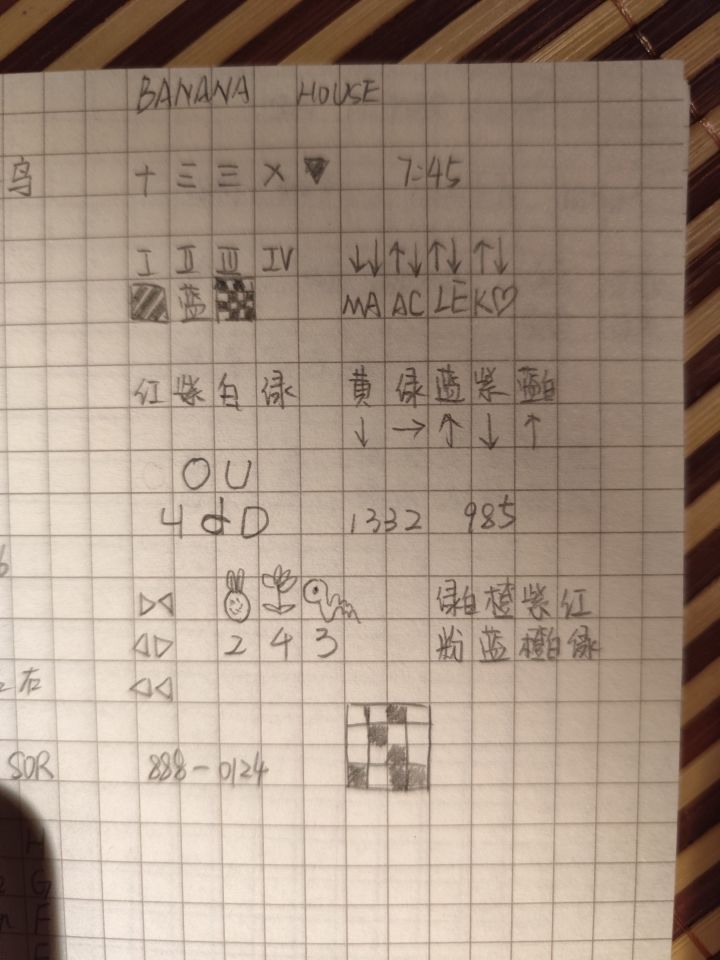 BANANA HOUSE
鸟 十 三 三 × ▼ 7:45
I II III IV ↓↓ ↑↓ ↑↓ ↑↓
蓝 MA AC LE K♡
红 紫 白 绿 黄 绿 蓝 紫 蓝白
↓ → ↑ ↓ ↑
O U
4 d D 1332 985
▷◁ 绿白橙紫红
◁▷ 2 4 3 粉蓝橙白绿
右 ◁◁
SOR 888-0124
H
G
F